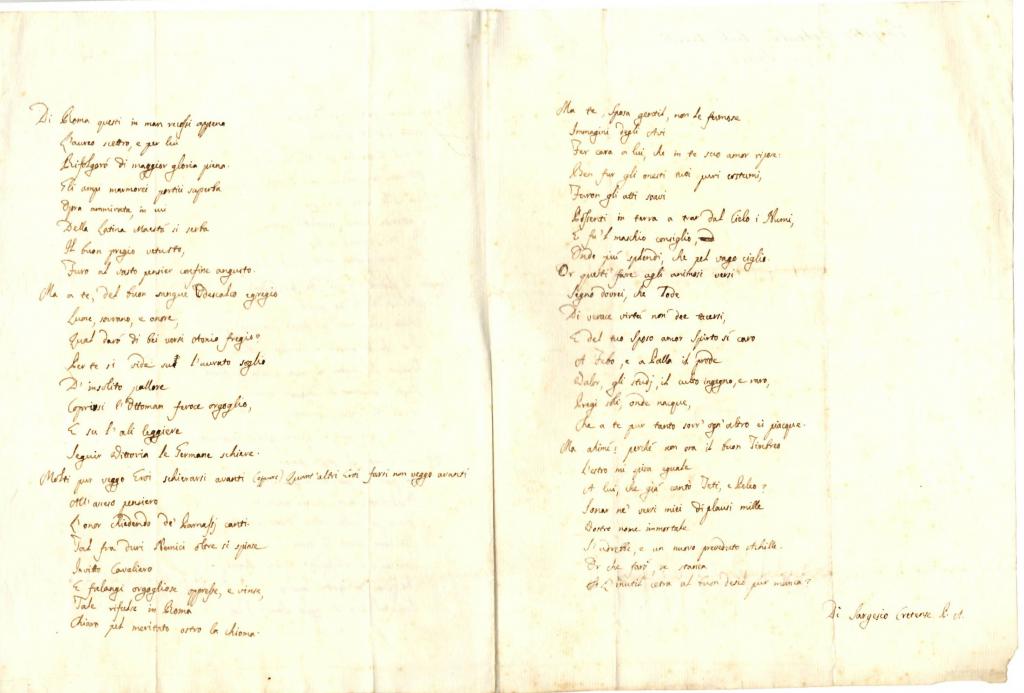 Di Roma questi in man recossi appena
L'aureo scettro, e per lui
Rifolgorò di maggior gloria piena.
Gli ampi marmorei portici superba
Opra ammirata, in cui
Della Latina Maestà si serba
Il buon pregio vetusto,
Furo al vasto pensier confine angusto.
Ma a te, del buon sangue Odescalco egregio
Lume, sovrano, e onore,
Qual darò di bei versi Aonio fregio?
Per te si side sul l'aurato soglio
D'insolito pallore
Copriosi l'Ottoman feroce orgoglio,
E su l'ali leggiere
Seguir Vittoria le Germane schiere.
Molti pur veggo Eroi schierarsi avanti (oppure) Quant'altri Eroi farsi non veggo avanti
All'acceso pensiero
L'onor chiedendo de' Parnassj canti.
Tal fra duri Nemici oltre si spinse
Invitto Cavaliero
E falangi orgogliose oppresse, e vinse,
Tale rifulse in Roma
Chiaro pel meritato ostro la chioma.
Ma te, Sposa gentil, non le fumose
Immagini degli Avi
Fer cara a lui, che in te suo amor ripose.
Ben fur gli onesti tuoi puri costumi,
Furon gli atti soavi
Possenti in terra a trar dal Cielo i Numi,
E fu 'l maschio consiglio,
Onde più splendi, che pel vago ciglio.
Or questi fare agli animosi versi
Segno dovrei, che lode
Di verace virtù non dee tacersi,
E del tuo Sposo amor spirto sì caro
A Febo, e a Palla il prode
Valor, gli studj, il culto ingegno, e raro,
Pregi onde nacque,
Che a te pur tanto sovr' ogn'altro ei piacque.
Ma ahimè! perchè non ora il buon Timbreo
L'estro mi gira eguale
A lui, che già cantò Teti, e Peleo?
Sonar ne' versi miei di plausi mille
Vostro nome immortale
S'udrebbe, e un nuovo preveduto Achille.
Or che farò, se stanca
L'inutil cetra al buon desio pur manca?
Di Sargesio Cretense P. A.